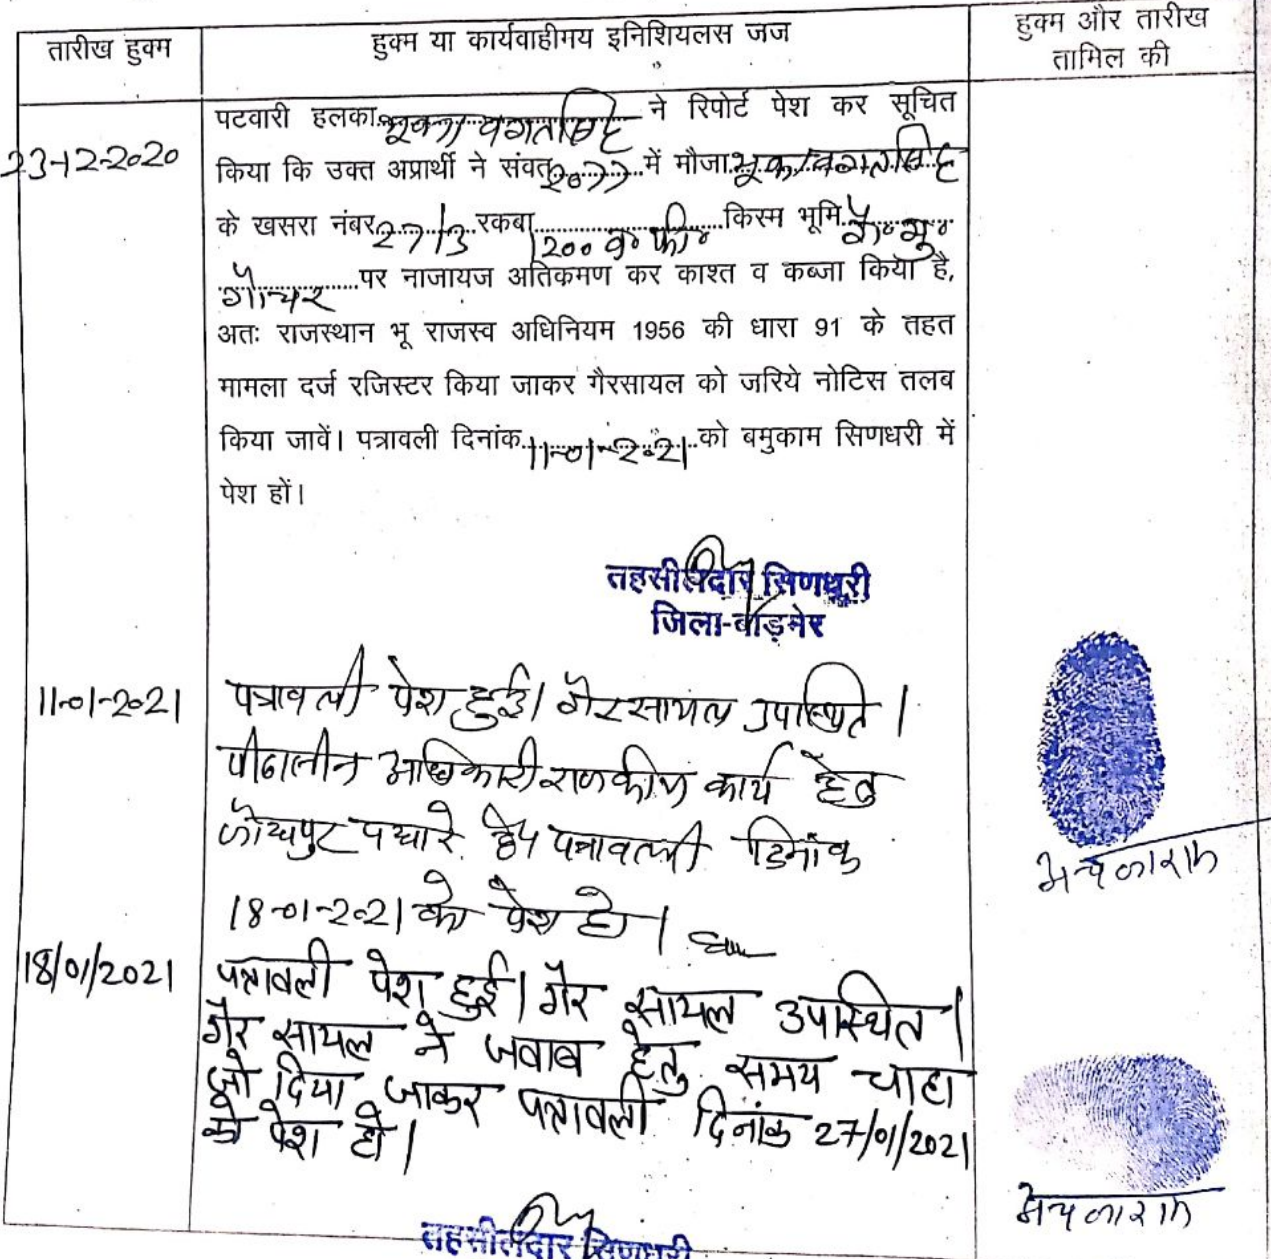 तारीख हुक्म
हुक्म या कार्यवाहीमय इनिशियलस जज
हुक्म और तारीख
तामिल की
23-12-2020
पटवारी हलका भूका भगतसिंह ने रिपोर्ट पेश कर सूचित
किया कि उक्त अप्रार्थी ने संवत् 2077 में मौजा भूका भगतसिंह
के खसरा नंबर 27/3 रकबा 1200 व॰ फी॰ किस्म भूमि गै॰ मु॰
गोचर पर नाजायज अतिकमण कर काश्त व कब्जा किया है,
अतः राजस्थान भू राजस्व अधिनियम 1956 की धारा 91 के तहत
मामला दर्ज रजिस्टर किया जाकर गैरसायल को जरिये नोटिस तलब
किया जावें। पत्रावली दिनांक 11-01-2021 को बमुकाम सिणधरी में
पेश हों।
तहसीलदार सिणधरी
जिला-बाड़मेर
11-01-2021
पत्रावली पेश हुई। गैरसायल उपस्थित।
पीठासीन अधिकारी राजकीय कार्य हेतु
जोधपुर पधारे हैं। पत्रावली दिनांक
18-01-2021 को पेश हो।
18/01/2021
पत्रावली पेश हुई। गैर सायल उपस्थित।
गैर सायल ने जवाब हेतु समय चाहा
जो दिया जाकर पत्रावली दिनांक 27/01/2021
को पेश हो।
तहसीलदार सिणधरी